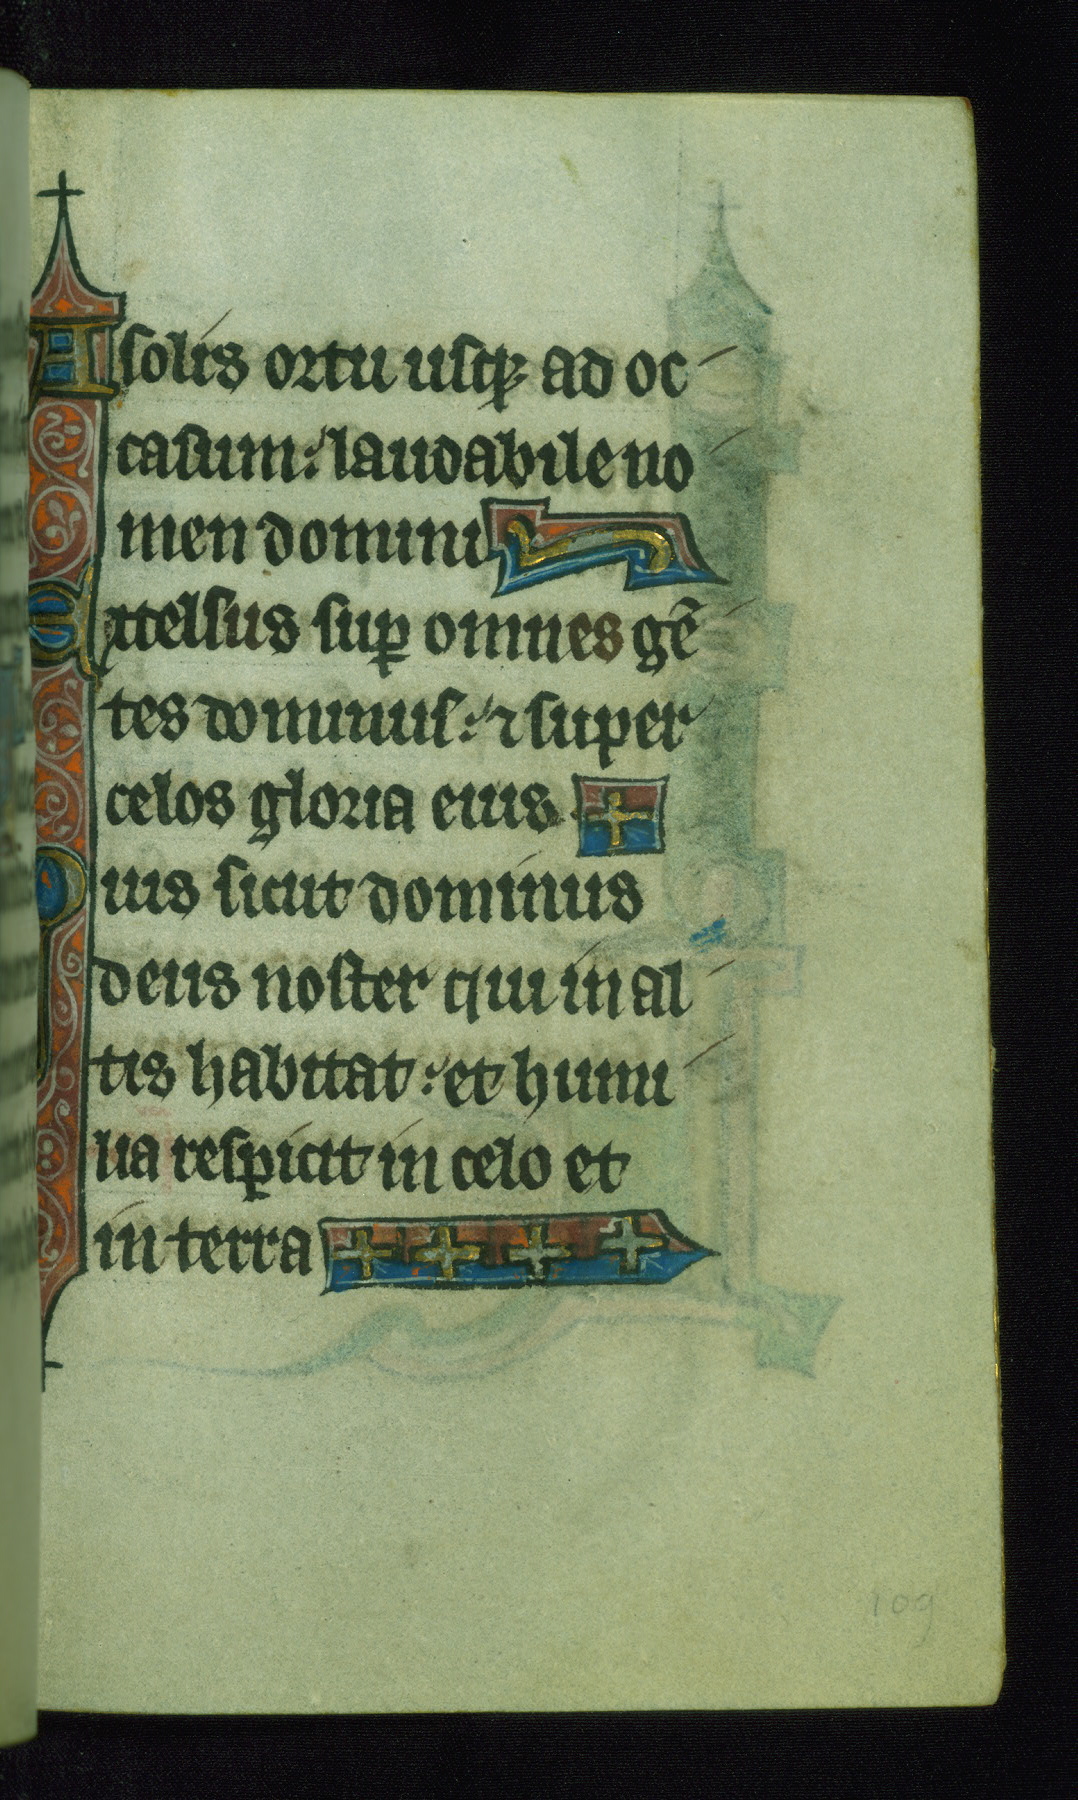 A solis ortu usq; ad oc
casum: laudabile no
men domini
Excelsus sup omnes gē
tes dominus: ⁊ super
celos gloria eius
Quis sicut dominus
deus noster qui in al
tis habitat: et humi
lia respicit in celo et
in terra
109